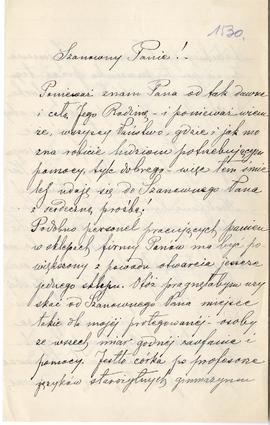 1530.
Szanowny Panie!
Ponieważ znam Pana od tak dawna
i całą Jego Rodzinę - i ponieważ wiem
że, wszyscy Państwo, gdzie i jak mo
żna robicie ludziom potrzebującym
pomocy, tyle dobrego - więc tem śmie
lej udaję się do Szanownego Pana
z serdeczną prośbą!
Podobno personel pracujących panien
w sklepach firmy Panów ma być po
większony z powodu otwarcia jeszcze
jednego sklepu. Otóż pragnęłabym uzy
skać od Szanownego Pana miejsce
takie dla mojej protegowanej - osoby
ze wszech miar godnej zaufania i
pomocy. Jestto córka po profesorze
języków starożytnych gimnazyum